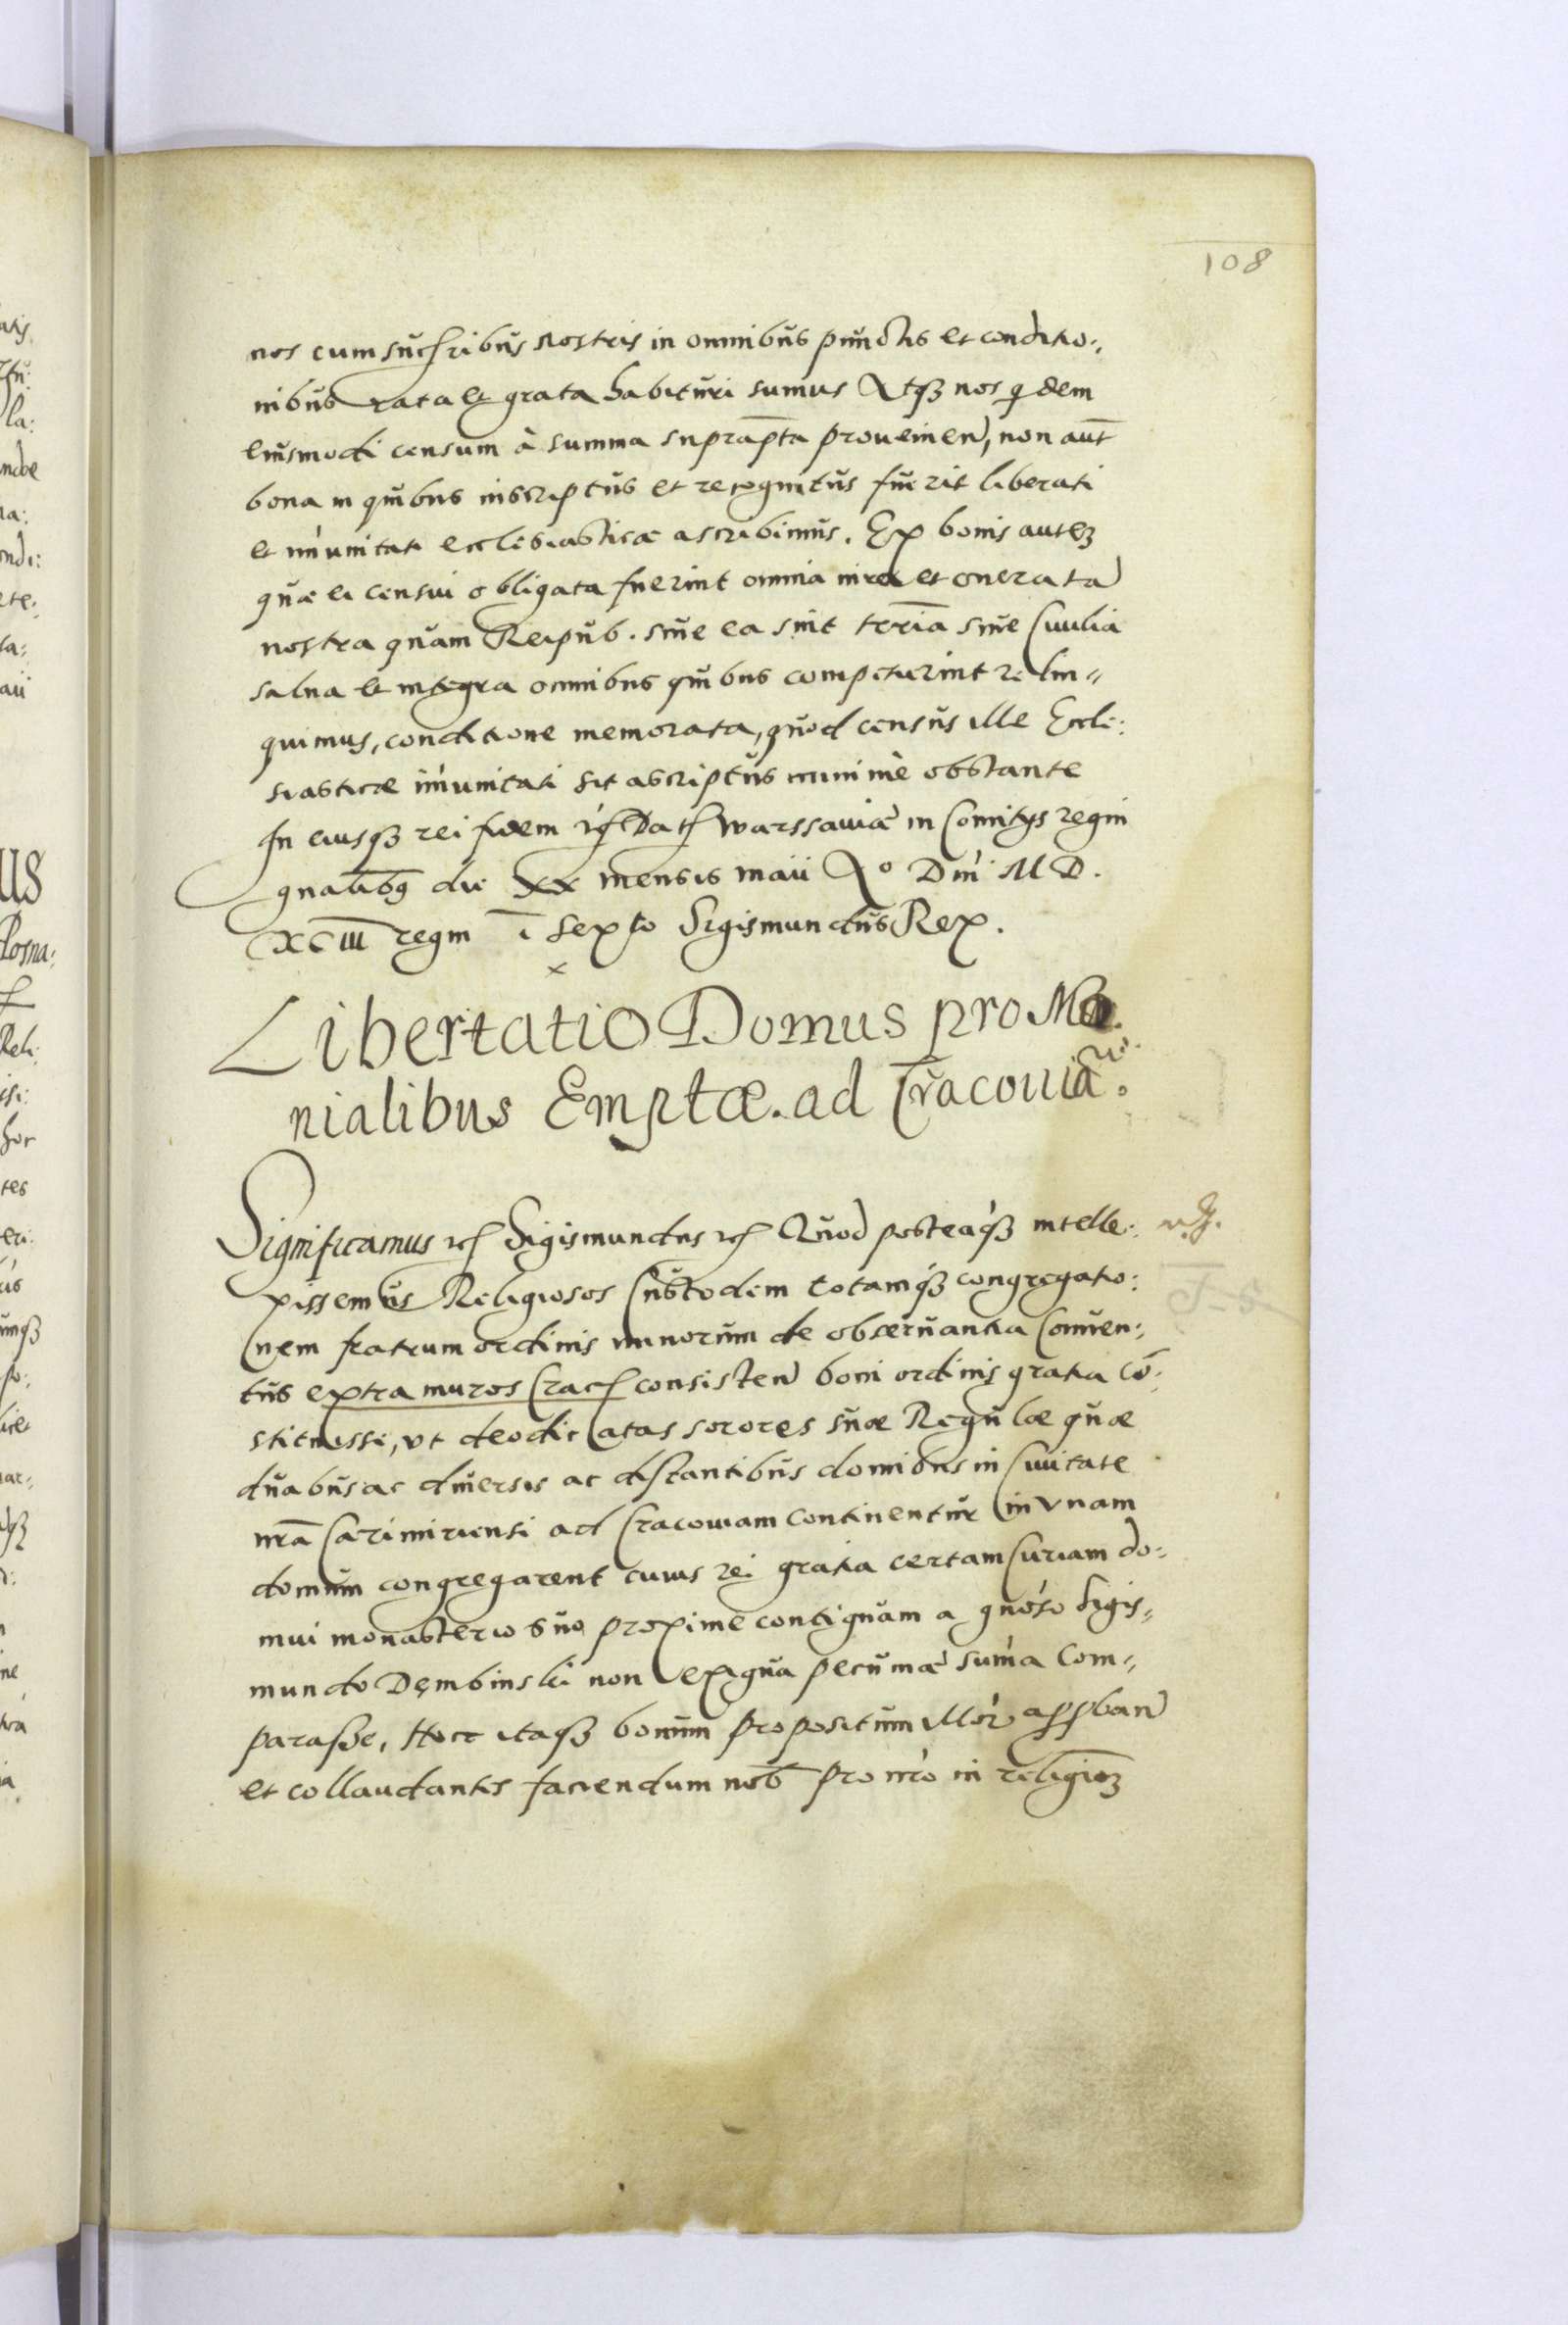 108
nos cum sucribus nostris in omnibus punctis et conditio:
nibus rata et grata habituri sumus Atq3 nos q̃dem
eiusmodi censum à summa suprapta prouenien, non aut̃
bona in quibus inscriptus et recognitus fuerit liberati
et im̃unitati ecclesiasticæ ascribimus. Ex bonis aute3
quæ ei censui obligata fuerint omnia iura et onera ta
nostra quam Reipub. siue ea sint trr̃ia siue Ciuilia
salua et integra omnibus quibus competierint relin=
quimus, conditione memorata, quod census ille Eccle:
siasticæ im̃unitati sit ascriptus minimè obstante
In cuiusq3 rei fidem Dat Warssauiæ in Comitys regni
gnalibq die XX mensis maii Ao Dni M D.
XCIII regni ĩ sexto Sigismundus Rex.
Libertatio Domus pro Mo.
nialibus Emptæ. ad Cracouiã.
Significamus Sigismundus Quod posteaq̃3 intelle:
xissemus Religiosos Custodem totamq3 congregatio:
nem fratrum ordinis minorum de obseruantia Conuen:
tus extra muros Crac consisten boni ordinis gratia cõ:
stituisse, vt deodicatas sorores suæ Regulæ quæ
duabus ac diuersis ac distantibus domibus in Ciuitate
nr̃a Casimiriensi ad Cracouiam continentur in vnam
domum congregarent cuius rei gratia certam Curiam do:
mui monasterio suo proxime contiguam a gnoso Sigis=
mundo Dęmbinski non exigua pecuniæ sum̃a Com=
parasse, Hocce itaq3 bonum propositum illor approban
et collaudantes faciendum nob̃ pro nr̃o in religio3